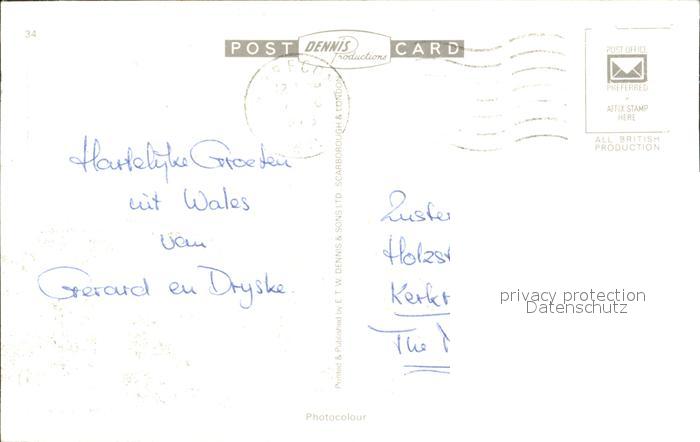 34
POST DENNIS Productions CARD
POST OFFICE
PREFERRED
AFFIX STAMP
HERE
ALL BRITISH
PRODUCTION
Hartelijke Groeten
uit Wales
van
Gerard en Dryske.
Printed & Published by E. T. W. DENNIS & SONS LTD SCARBOROUGH & LONDON
Zuster
Holzst
Kerkr
The
privacy protection
Datenschutz
Photocolour